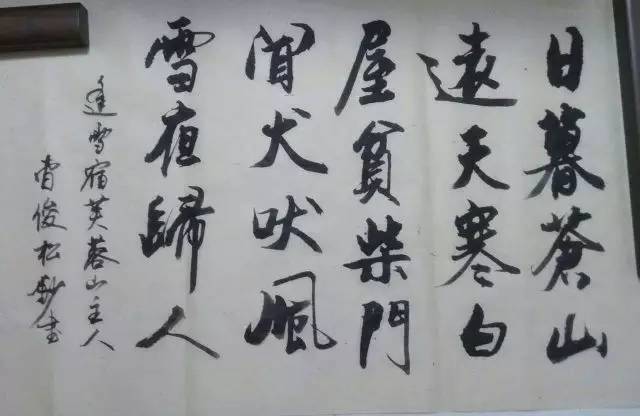 日暮蒼山
遠天寒白
屋貧柴門
聞犬吠風
雪夜歸人
逢雪宿芙蓉山主人
曹俊松書